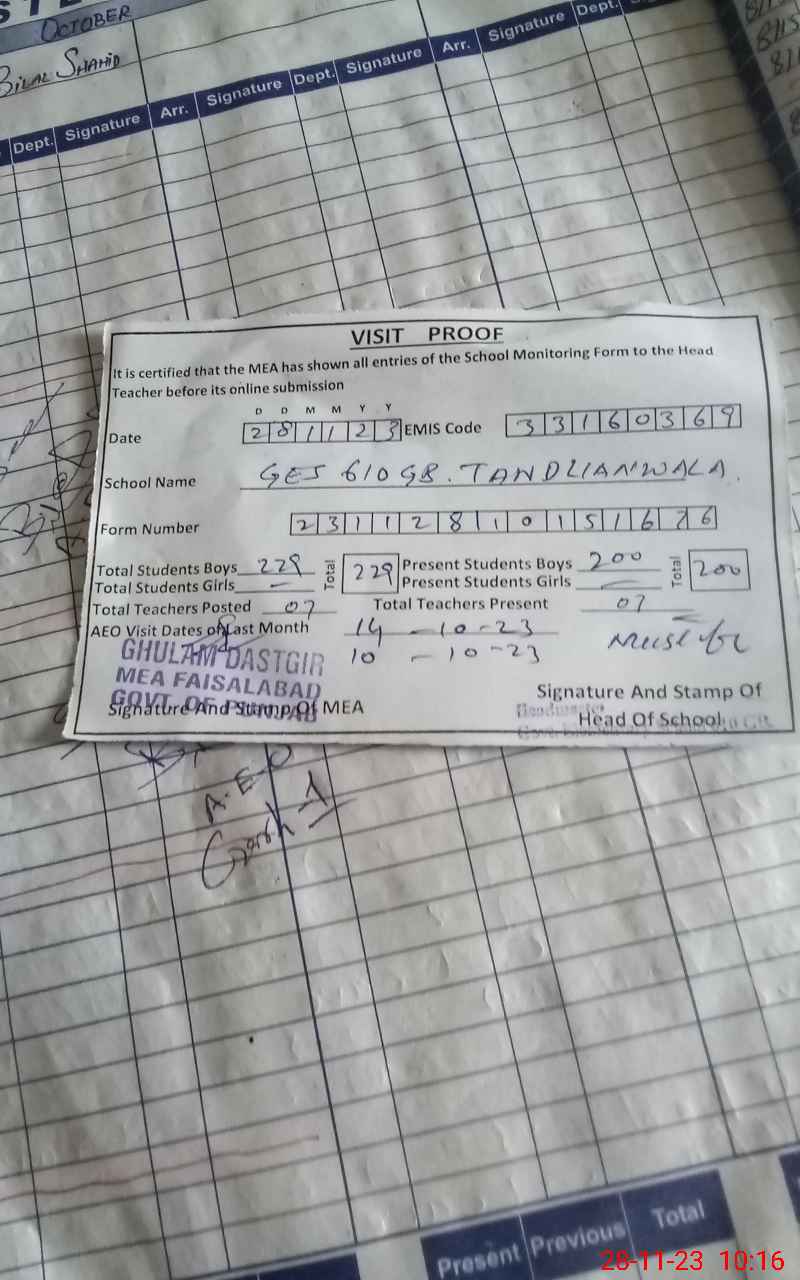 OCTOBER
BILAL SHAHID
Dept. Signature Arr. Signature Dept. Signature Arr. Signature Dept.
VISIT PROOF
It is certified that the MEA has shown all entries of the School Monitoring Form to the Head
Teacher before its online submission
D D M M Y Y
Date 281123 EMIS Code 33160369
School Name GES 610 GB. TANDLIANWALA.
Form Number 23112810151676
Total Students Boys 229 Total 229 Present Students Boys 200 Total 200
Total Students Girls — Present Students Girls —
Total Teachers Posted 07 Total Teachers Present 07
AEO Visit Dates of Last Month 14-10-23
10-10-23
GHULAM DASTGIR
MEA FAISALABAD
GOVT. OF PUNJAB
Signature And Stamp Of MEA
Signature And Stamp Of
Head Of School
A.E.O
Present Previous Total
28-11-23 10:16